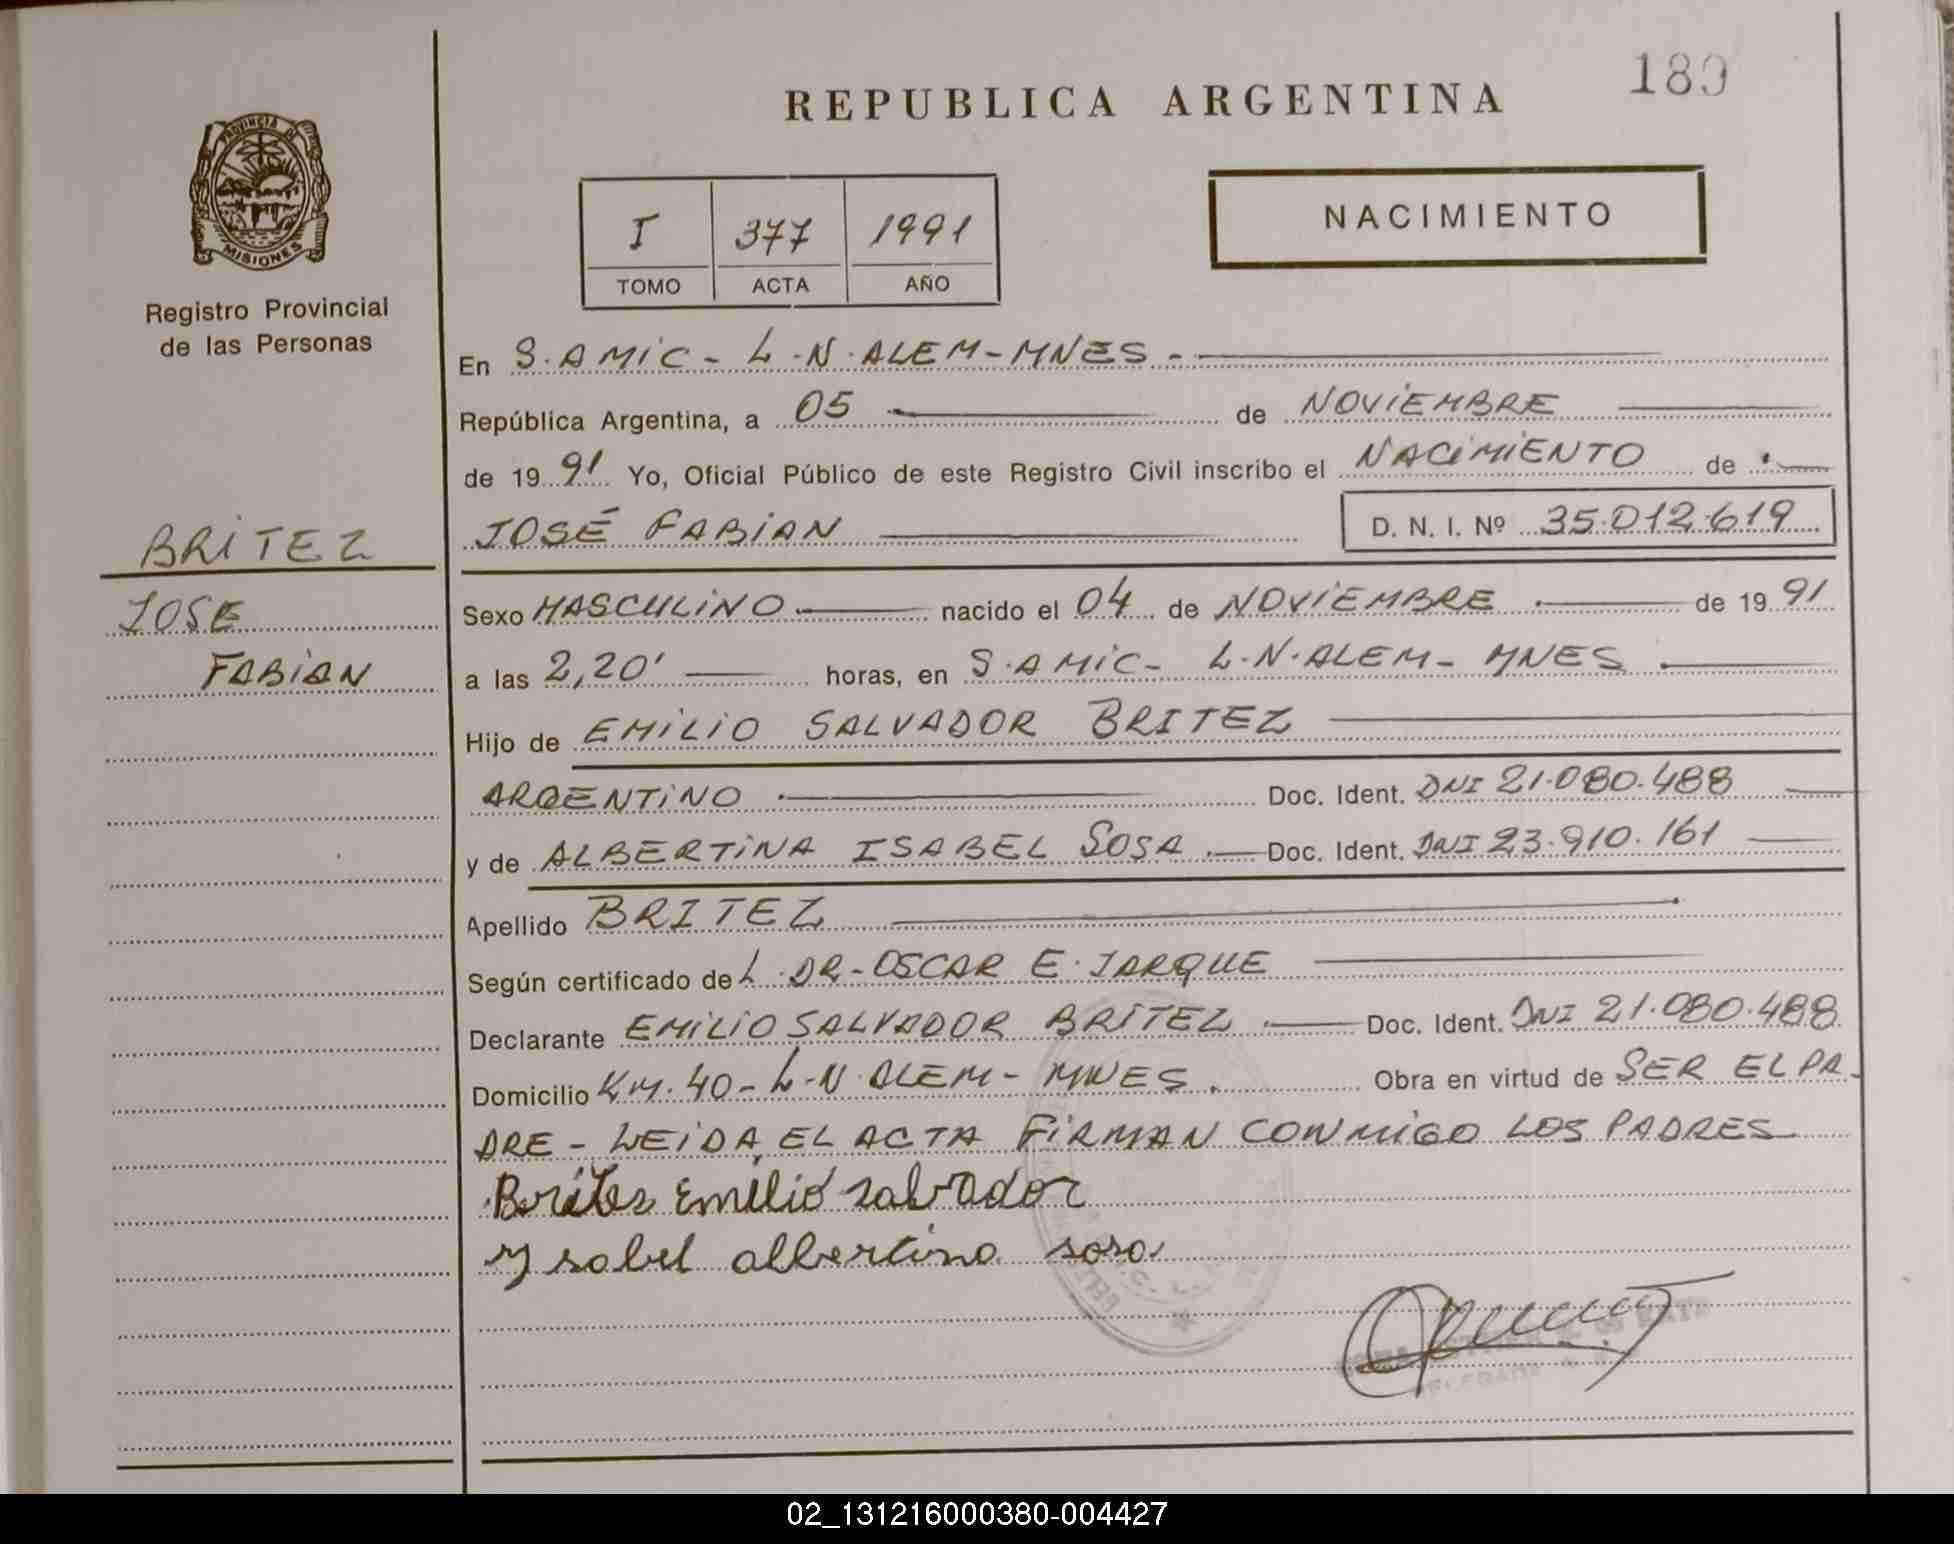 189
REPUBLICA ARGENTINA
PROVINCIA DE
MISIONES
Registro Provincial
de las Personas
I 377 1991
TOMO ACTA AÑO
NACIMIENTO
En S. AMIC - L. N. ALEM - MNES -
República Argentina, a 05 de NOVIEMBRE
de 19 91 Yo, Oficial Público de este Registro Civil inscribo el NACIMIENTO de
JOSÉ FABIAN D. N. I. Nº 35.012.619
BRITEZ
JOSE
FABIAN
Sexo MASCULINO nacido el 04 de NOVIEMBRE de 19 91
a las 2,20' horas, en S. AMIC - L. N. ALEM - MNES
Hijo de EMILIO SALVADOR BRITEZ
ARGENTINO Doc. Ident. DNI 21.080.488
y de ALBERTINA ISABEL SOSA Doc. Ident. DNI 23.910.161
Apellido BRITEZ
Según certificado de L. DR. OSCAR E. JARQUE
Declarante EMILIO SALVADOR BRITEZ Doc. Ident. DNI 21.080.488
Domicilio KM. 40 - L. N. ALEM - MNES. Obra en virtud de SER EL PA-
DRE - LEIDA EL ACTA FIRMAN CONMIGO LOS PADRES
Britez Emilio salvador
Ysabel albertina sosa
02_131216000380-004427